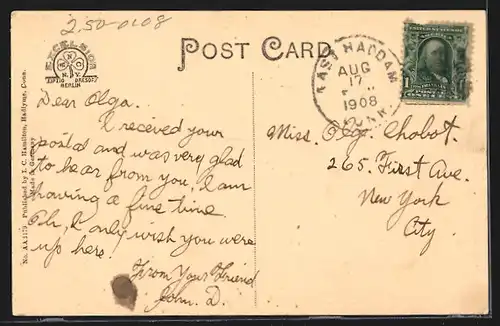 250-0108
POST CARD
EXCELSIOR
N.Y.
LEIPZIG DRESDEN
BERLIN
EAST HADDAM
AUG
17
1908
CONN.
1
No. AA1173 Published by I. C. Hamilton, Hadlyme, Conn.
Made in Germany
Dear Olga.
I received your
postal and was very glad
to hear from you, I am
having a fine time
Oh, I only wish you were
up here.
From Your Friend
John. D.
Miss. Olga Chobot.
265. First Ave.
New York
City.